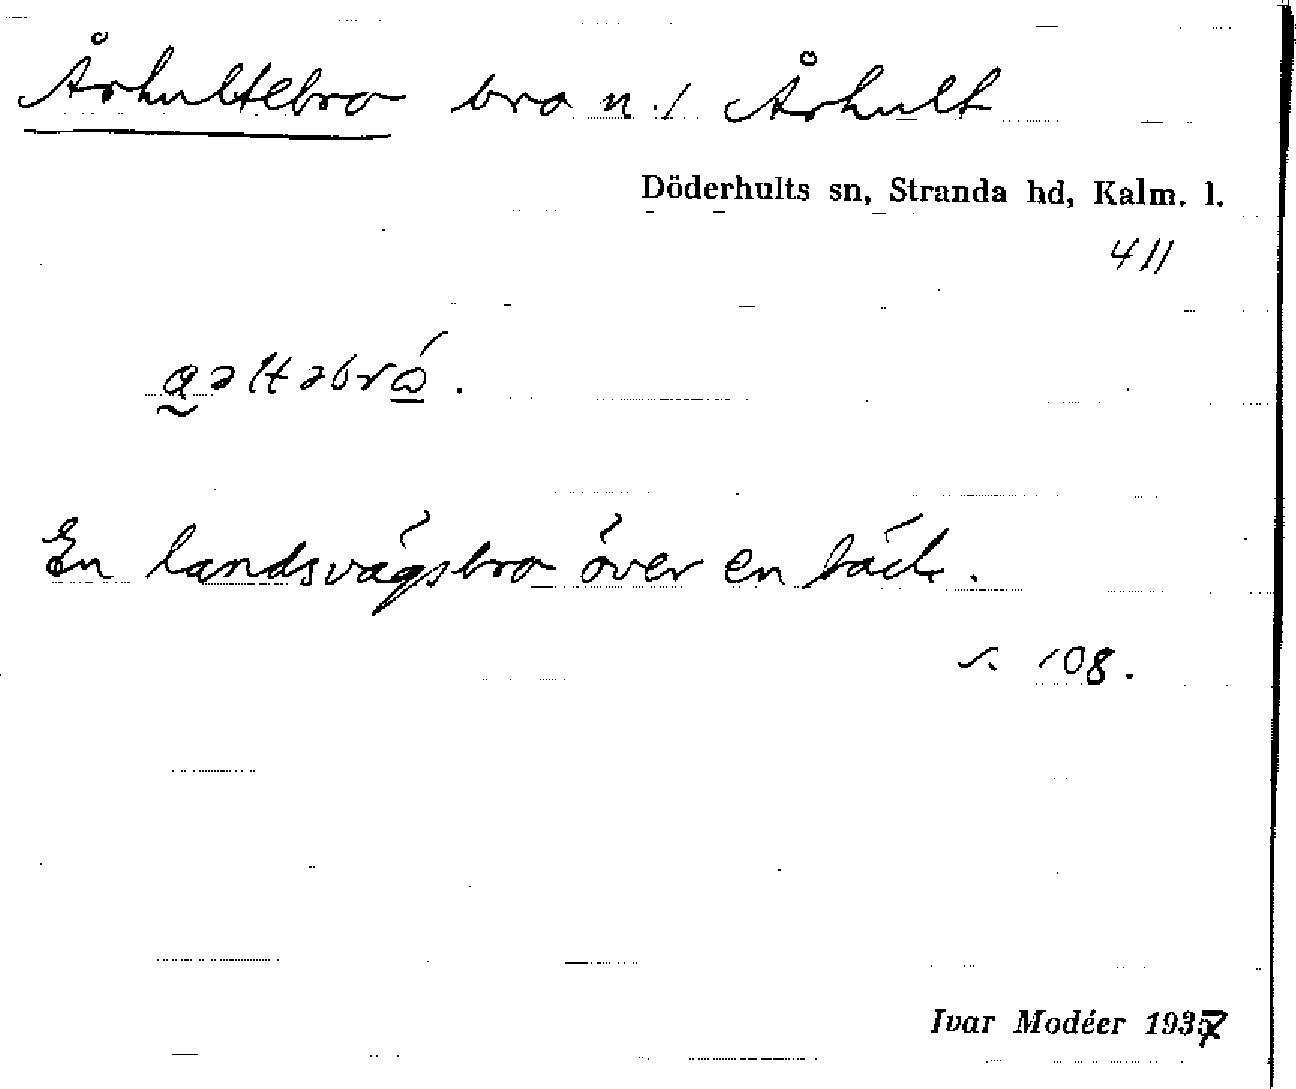 Århultebro bro n. / Århult
Döderhults sn, Stranda hd, Kalm. l.
411
En landsvägsbro över en bäck.
s. 108.
Ivar Modéer 1937